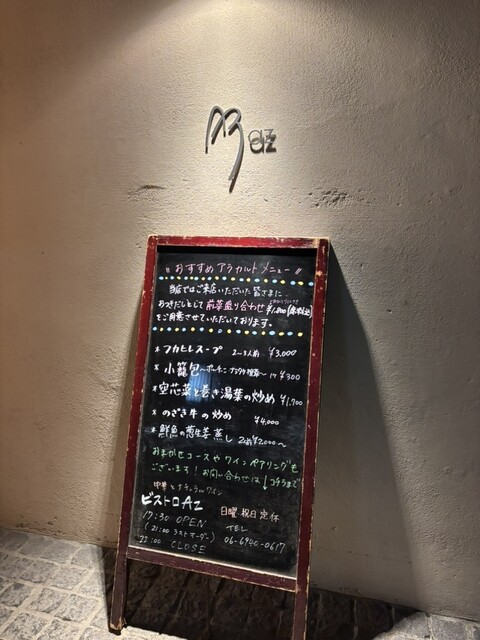 az
〃おすすめアラカルトメニュー〃
当店ではご来店いただいた皆さまに
おつきだしとして前菜盛り合わせ ¥1,800
をご用意させていただいております。
* フカヒレスープ 2〜3人前 ¥3,000
* 小籠包 1ヶ ¥300
* 空芯菜と巻き湯葉の炒め ¥1,900
* のざき牛の炒め ¥4,000
* 鮮魚の葱生姜蒸し ¥2,000〜
おまかせコースやワインペアリングも
ございます!お問い合わせは↓コチラまで
中華とナチュラルワイン
ビストロAz
日曜 祝日 定休
17:30 OPEN
TEL
(21:00 ラストオーダー)
06-6940-0617
23:00 CLOSE